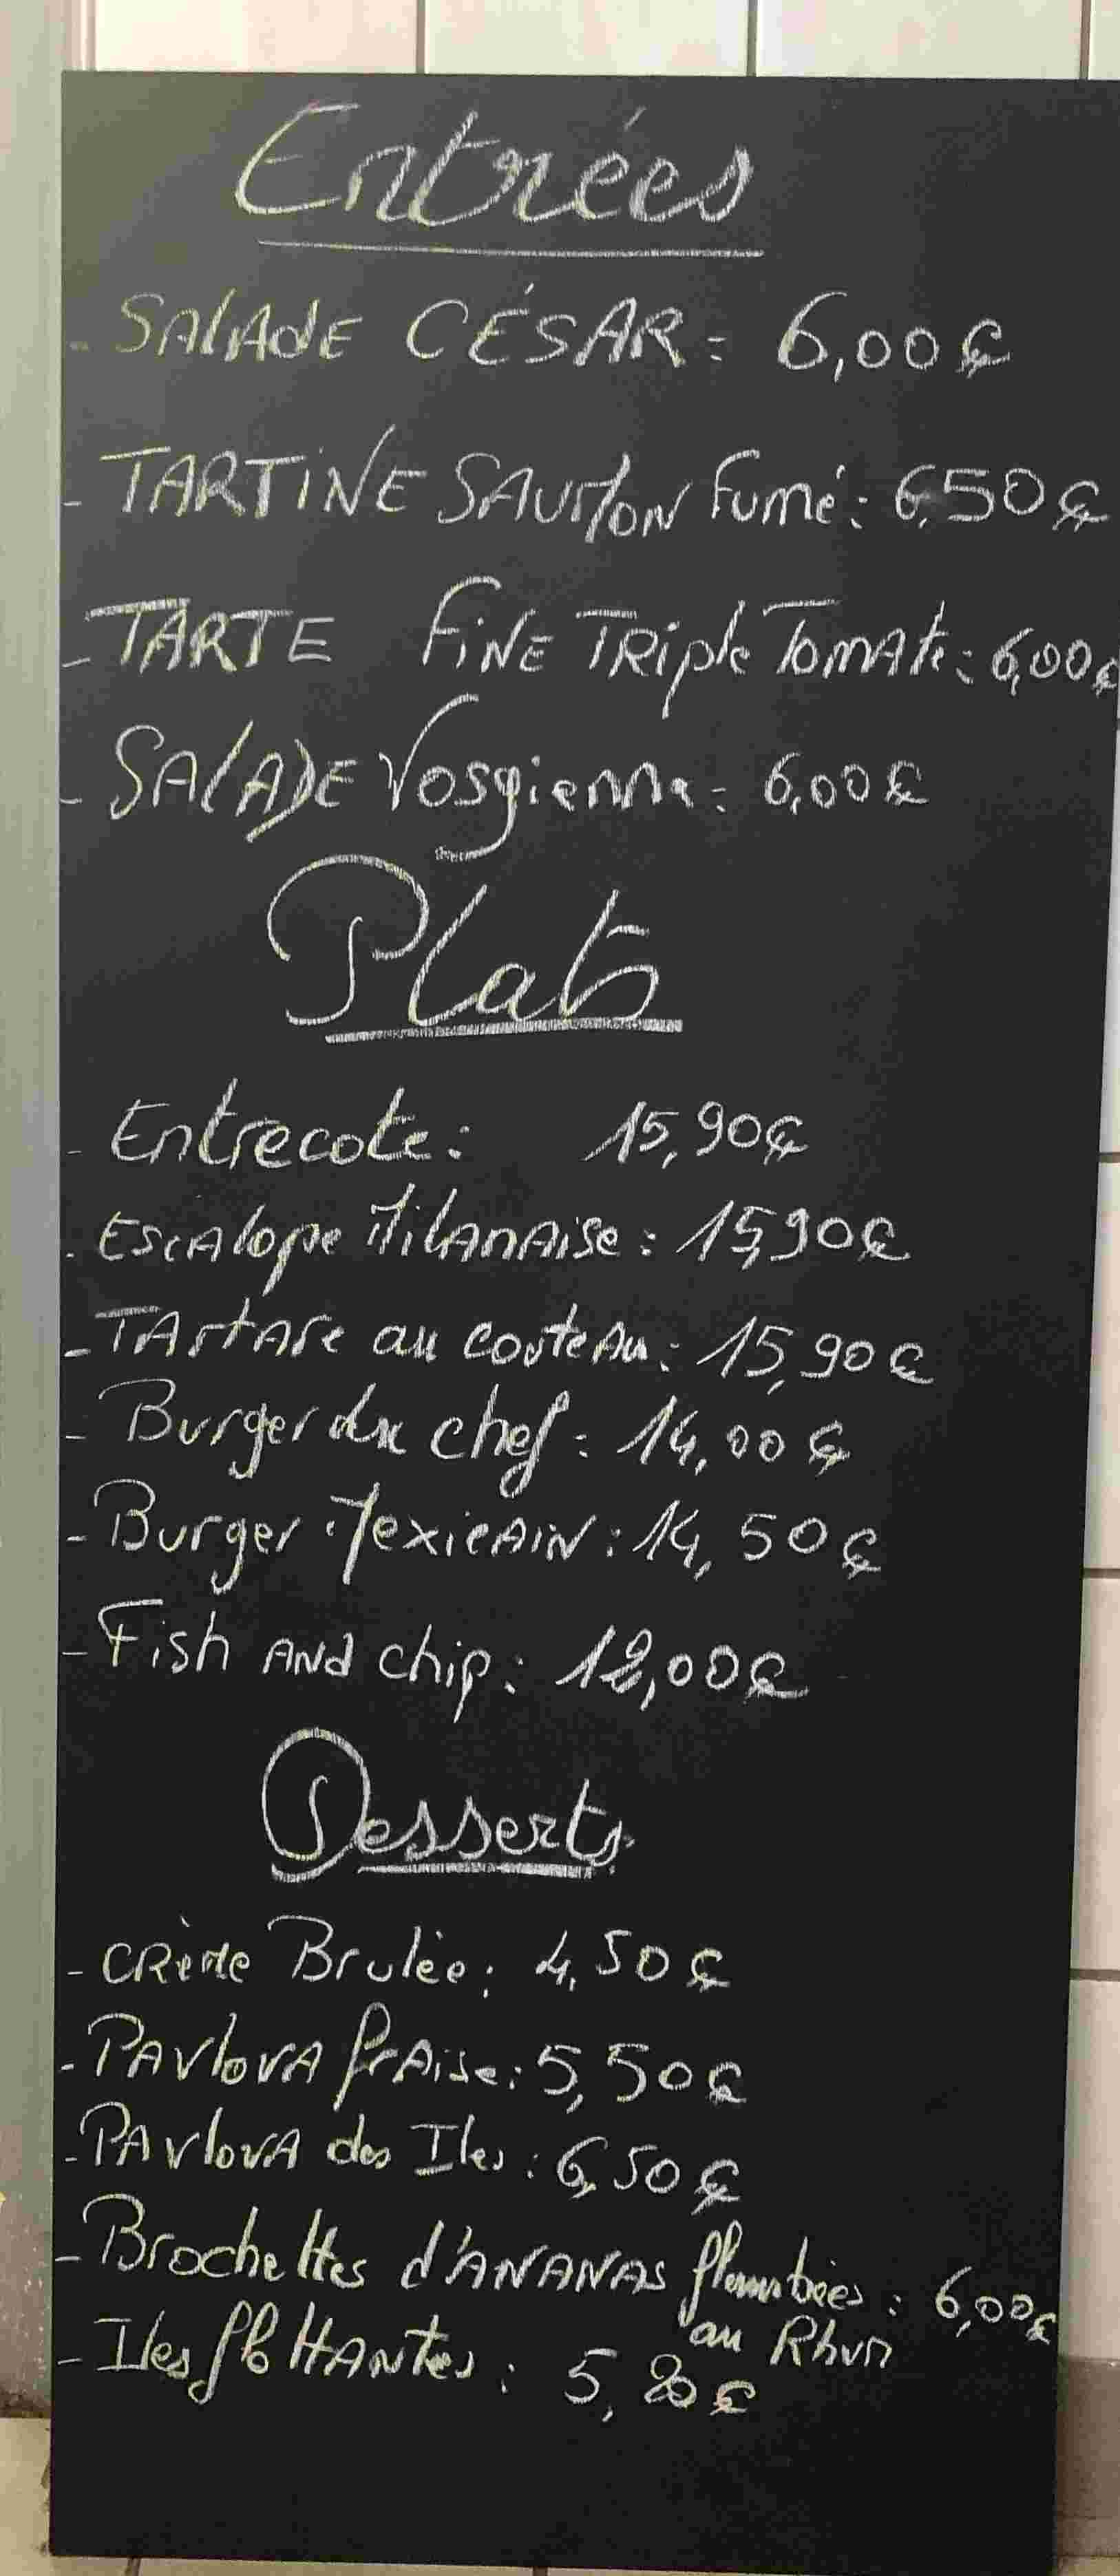 Entrées
- SALADE CÉSAR : 6,00€
- TARTINE SAUMON Fumé : 6,50€
- TARTE FINE TRiple TomAte : 6,00€
- SALADE Vosgienne : 6,00€
Plats
- Entrecote : 15,90€
- EscAlope MilAnAise : 15,90€
- TArtAre au couteAu : 15,90€
- Burger du chef : 14,00€
- Burger MexicAIN : 14,50€
- Fish AND chip : 12,00€
Desserts
- CRème Brulée : 4,50€
- PAVlovA frAise : 5,50€
- PAVlovA des Iles : 6,50€
- Brochettes d'ANANAS flambées : 6,00€
au Rhum
- Iles flottANtes : 5,20€